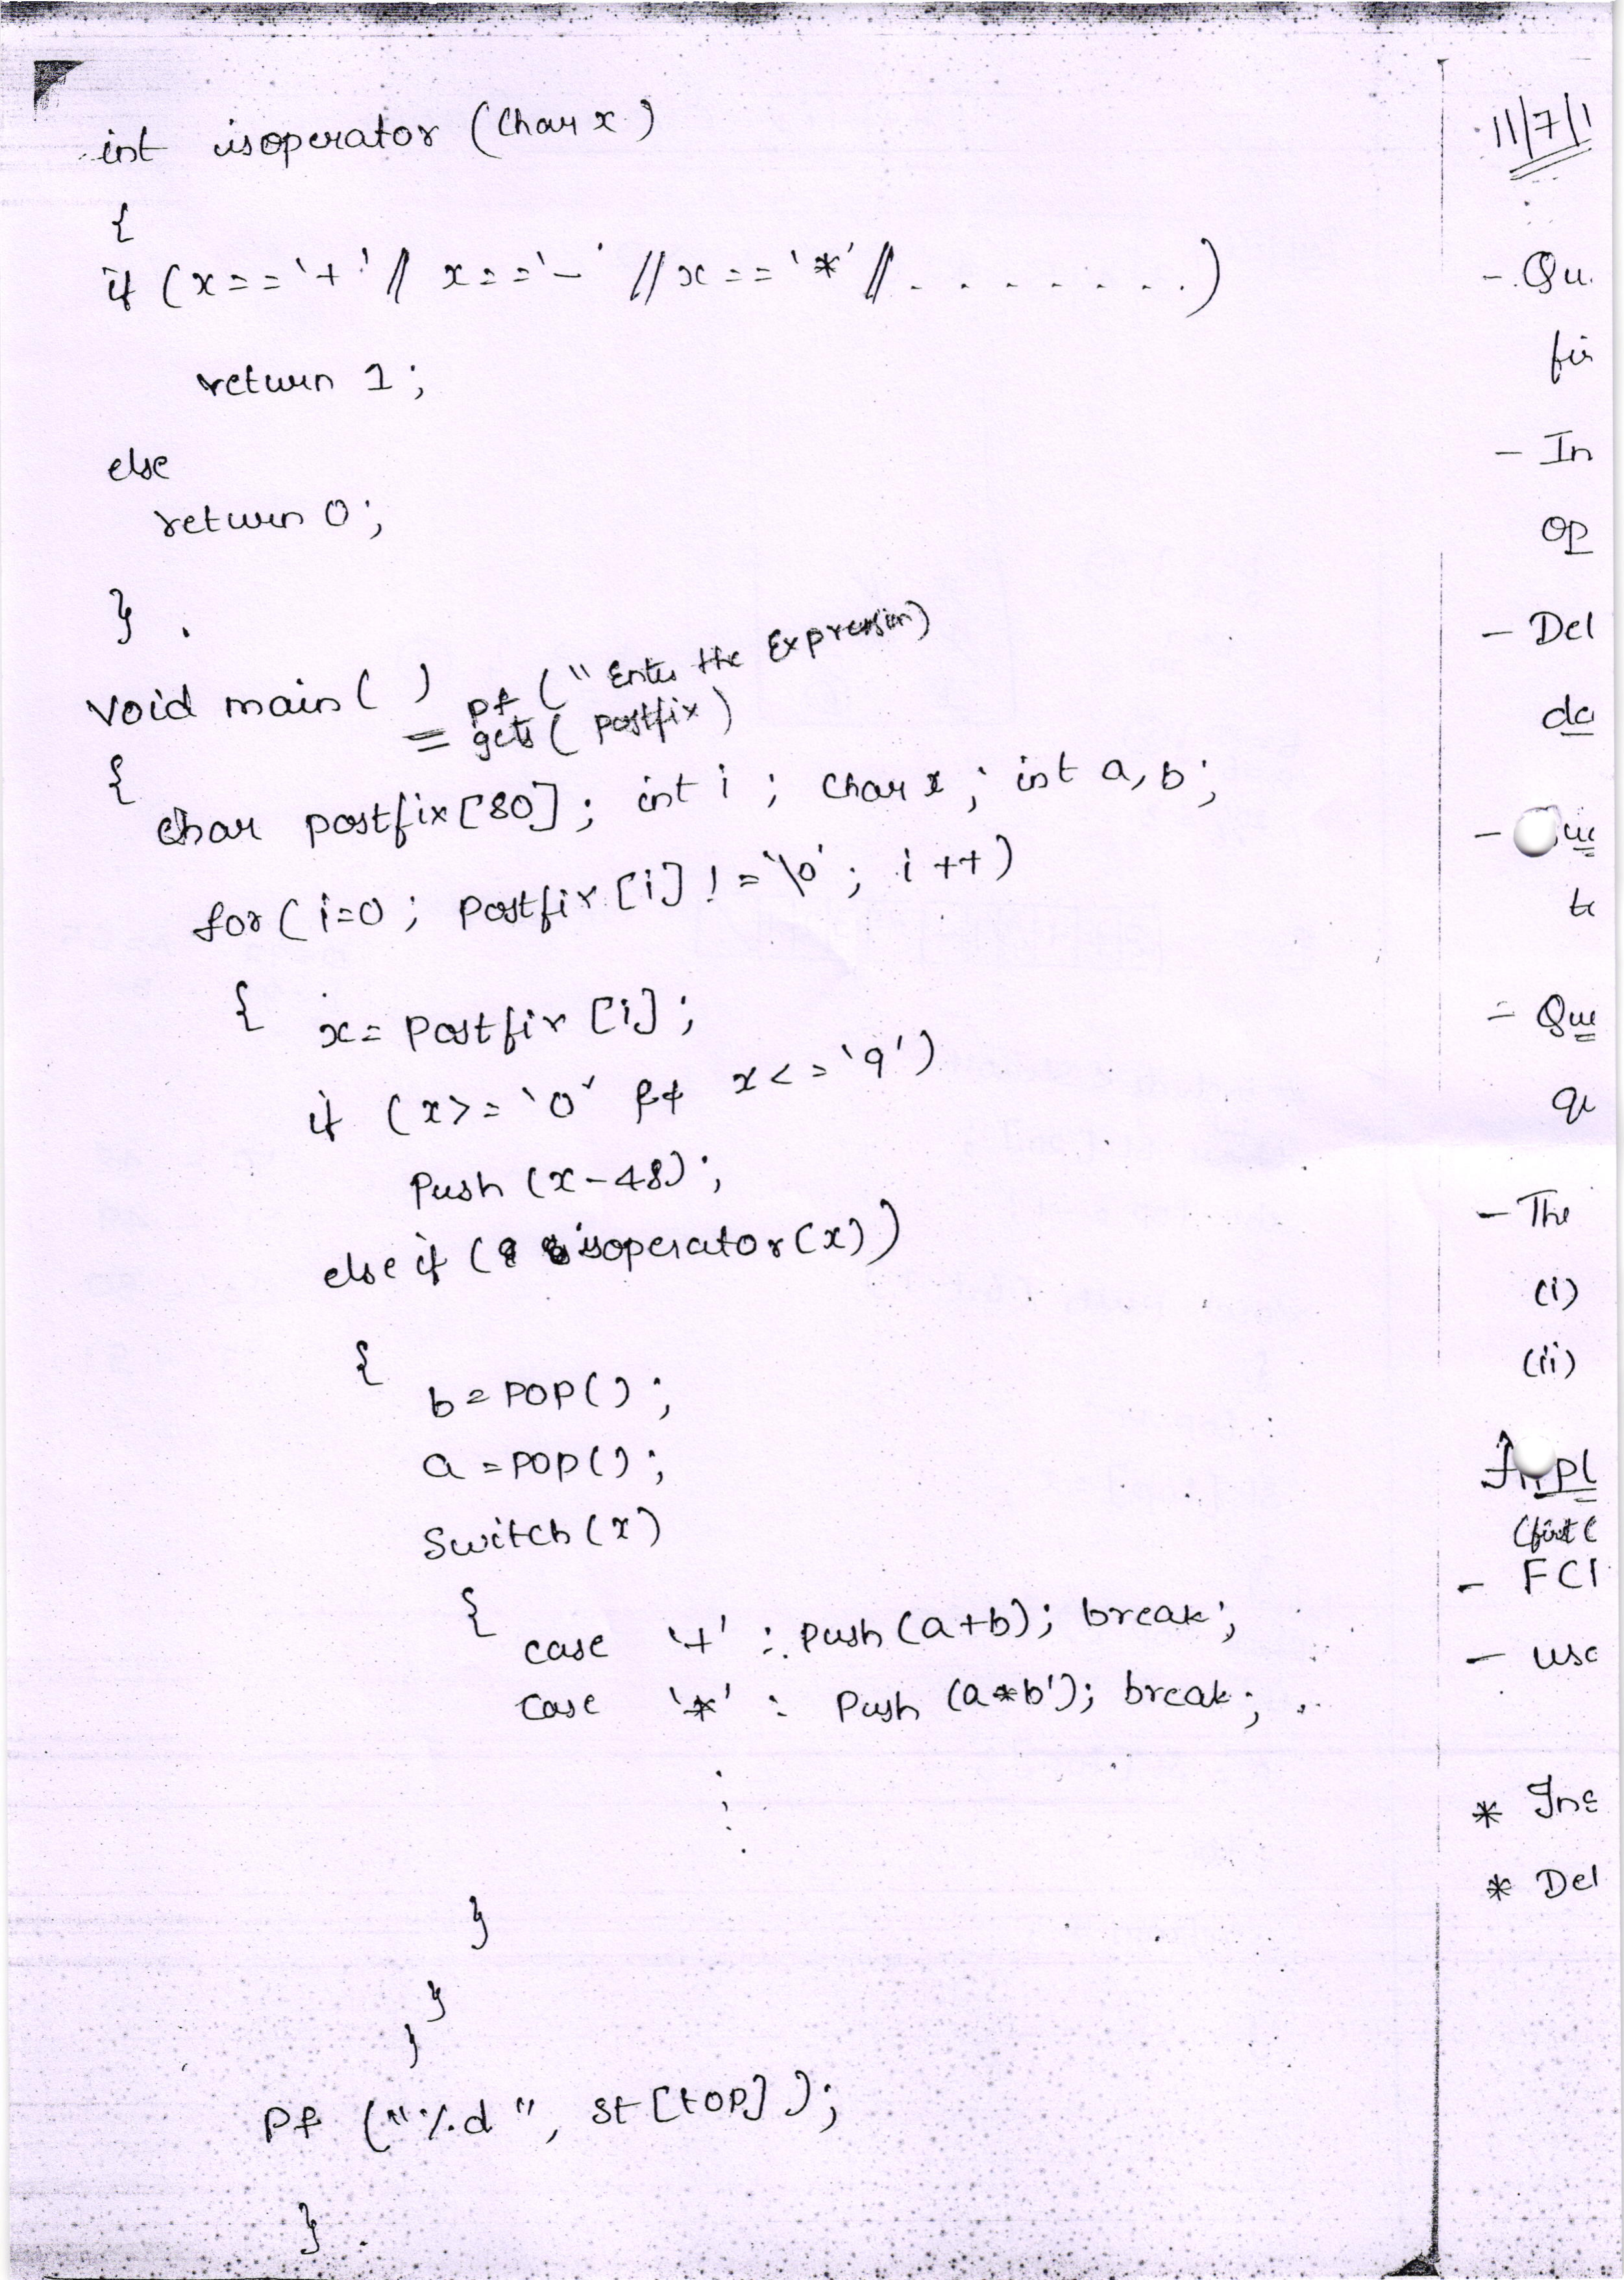 int isoperator (Char x)
{
if (x=='+' || x=='-' || x=='*' || . . . . . . . .)
return 1;
else
return 0;
} .
void main( )
pf ("Enter the Expression)
= gets( postfix)
{
char postfix[80]; int i; Char x; int a, b;
for( i=0; Postfix[i] != '\0'; i++)
{ x= Postfix [i];
if (x>='0' && x<='9')
Push (x-48);
else if ( isoperator(x))
{
b=POP();
a=POP();
Switch(x)
{
case '+' : Push (a+b); break;
case '*' : Push (a*b'); break;
}
}
}
Pf ("%d", st[top]);
} .
11/7/1
- Qu.
fir
- In
op
- Del
da
- Que
to
- Que
qu
- The
(i)
(ii)
Impl
(first (
- FCI
- use
* Ins
* Del